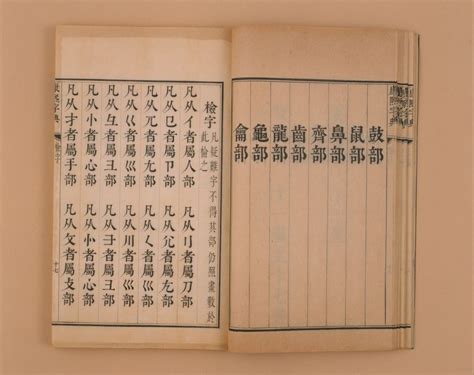 鼓部
鼠部
鼻部
齊部
齒部
龍部
龜部
龠部
檢字 凡疑難字不得其部仍照畫數於此檢之
凡从亻者屬人部 凡从刂者屬刀部
凡从㔾者屬卩部 凡从尣者屬尢部
凡从兀者屬尢部 凡从𡿨者屬巛部
凡从巜者屬巛部 凡从川者屬巛部
凡从彑者屬彐部 凡从⺕者屬彐部
凡从忄者屬心部 凡从㣺者屬心部
凡从扌者屬手部 凡从攵者屬攴部
康熙字典 檢字 十七